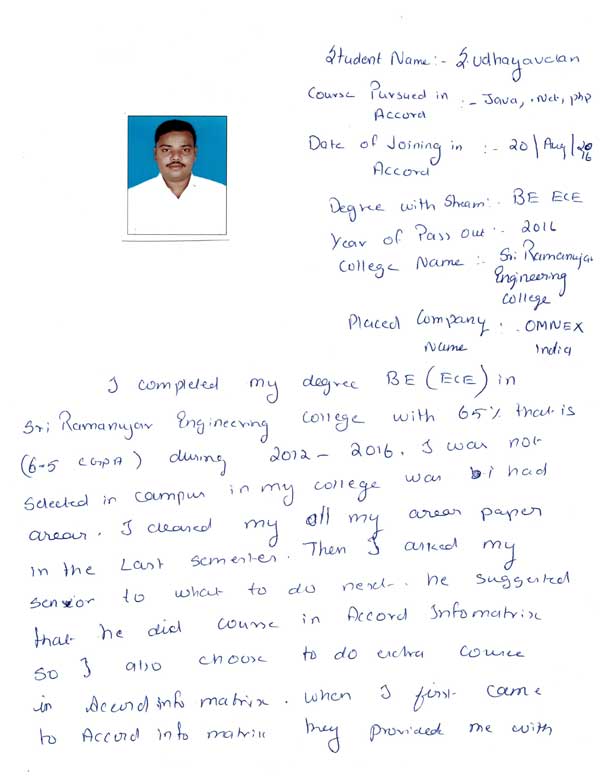 Student Name:- S.udhayavelan
Course Pursued in :- Java, .Net, php
Accord
Date of Joining in :- 20/Aug/2016
Accord
Degree with Stream:- BE ECE
Year of Pass out :- 2016
College Name :- Sri Ramanujar
Engineering
College
Placed Company :- OMNEX
Name India
I completed my degree BE (ECE) in
Sri Ramanujar Engineering college with 65% that is
(6.5 CGPA) during 2012 - 2016. I was not
selected in campus in my college was i had
arear. I cleared my all my arear paper
in the Last semester. Then I asked my
senior to what to do next. he suggested
that he did course in Accord Infomatrix
so I also choose to do extra course
in Accord Info matrix. when I first came
to Accord info matrix they provided me with